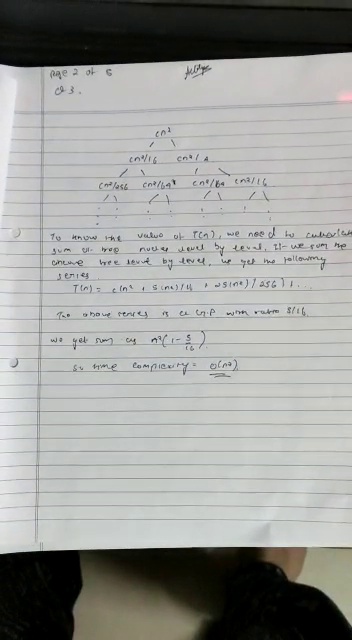 Page 2 of 5
Q 3.
cn²
cn²/16 cn²/4
cn²/256 cn²/64 cn²/64 cn²/16
To know the value of T(n), we need to calculate
sum of tree nodes level by level. If we sum the
above tree level by level, we get the following
series
T(n) = c(n² + 5(n²)/16 + 25(n²)/256) + ...
The above series is a G.P with ratio 5/16
we get sum as n²(1 - 5/16)
so time complexity = O(n²)